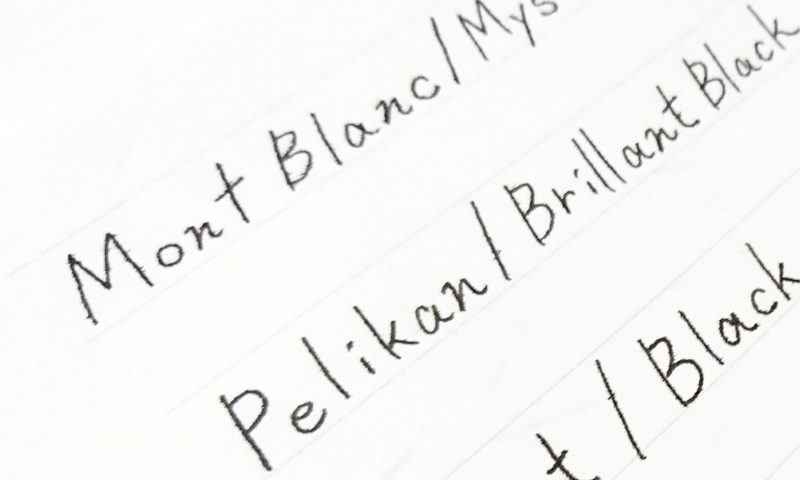 Mont Blanc/Mys
Pelikan/Brillant Black
t/Black